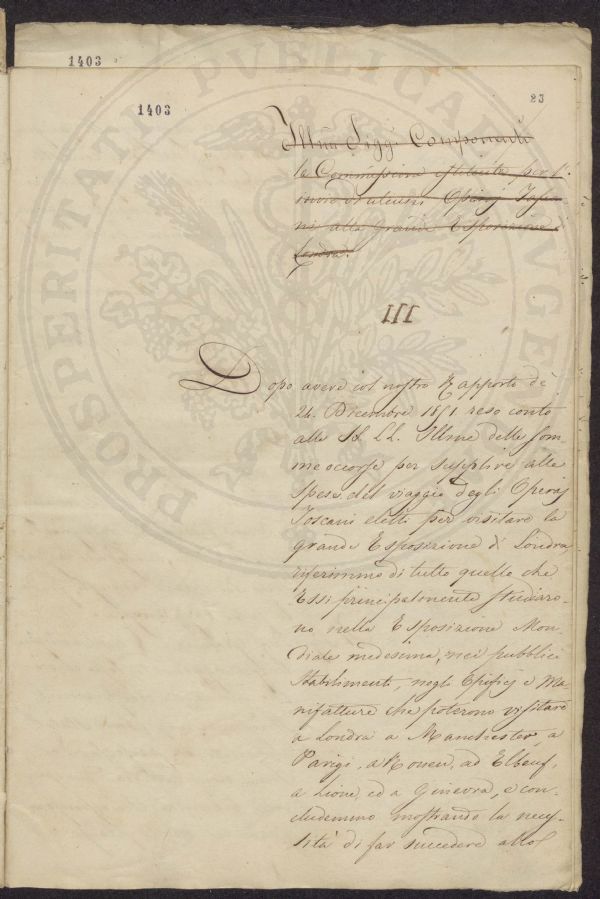 1403
1403
23
Illmi Sigg. Componenti
la Commissione istituita per l'
invio di alcuni Operaj Tosca
ni alla Grande Esposizione di
Londra.
III
Dopo avere col nostro Rapporto de'
24. Dicembre 1851 reso conto
alle SS. LL. Illme delle som
me occorse per supplire alle
spese del viaggio degli Operaj
Toscani eletti per visitare la
grande Esposizione di Londra
riferimmo di tutto quello che
Essi principalmente studiaro-
no nella Esposizione Mon-
diale medesima, nei pubblici
stabilimenti, negli Opificj e Ma-
nifatture che poterono visitare
a Londra a Manchester, a
Parigi, a Rouen, ad Elbeuf,
a Lione, ed a Ginevra, e con-
cludemmo mostrando la neces-
sità di far succedere allo
PROSPERITATI PUBLICAE AUGENDAE